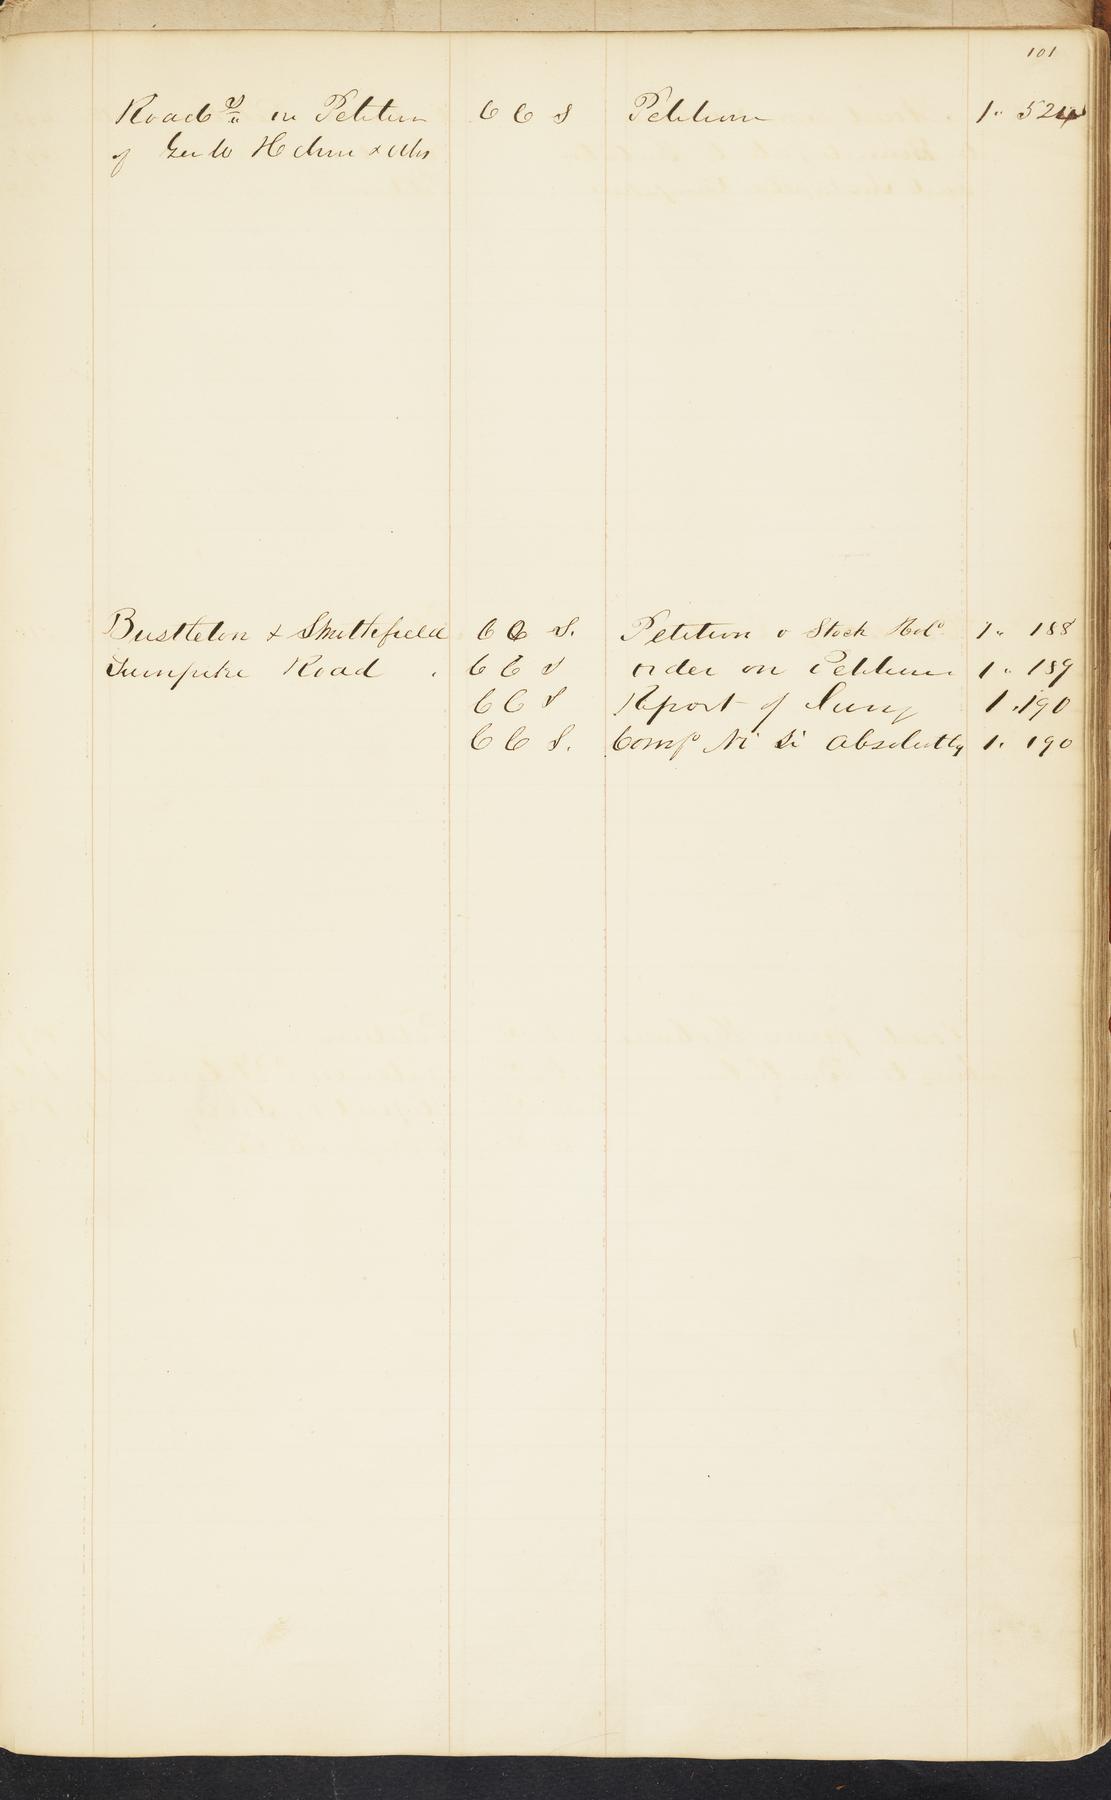 101
Road in Petition C C S Petition 1. 524
of Geo W Helme & als
Bustleton & Smithfield C C S. Petition o Stock Hol 1. 188
Turnpike Road . C C S order on Petition 1. 189
C C S Report of Jury 1. 190
C C S. Conf Ni Si Absolutly 1. 190